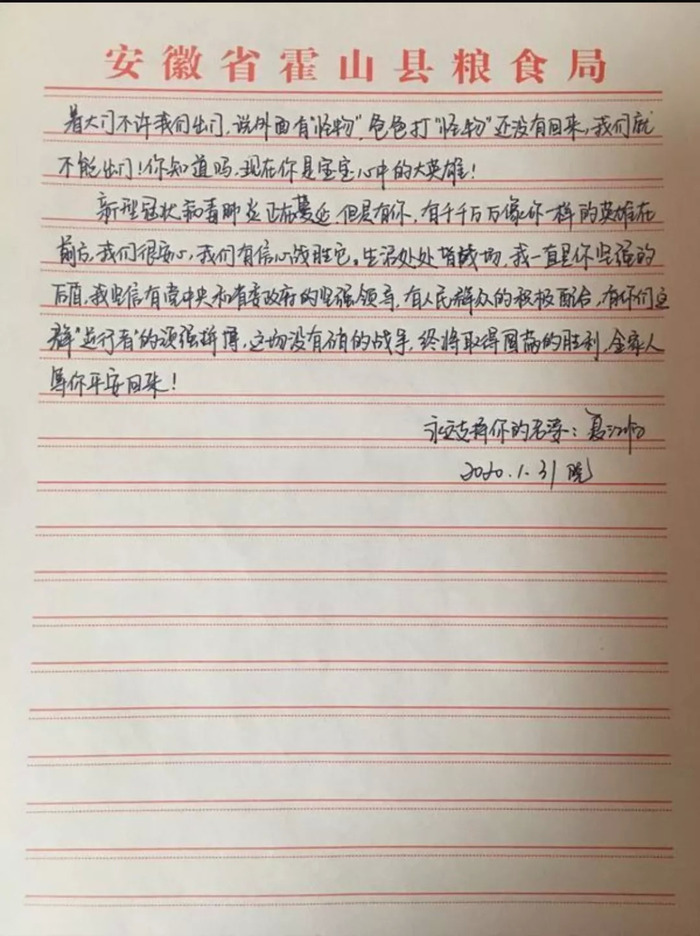 安徽省霍山县粮食局
着大门不许我们出门,说外面有"怪物",爸爸打"怪物"还没有回来,我们就
不能出门!你知道吗,现在你是宝宝心中的大英雄!
新型冠状病毒肺炎正在蔓延,但是有你,有千千万万像你一样的英雄在
前方,我们很安心,我们有信心战胜它。生活处处皆战场,我一直是你坚强的
后盾,我坚信有党中央和省委政府的坚强领导,有人民群众的积极配合,有你们这
群"逆行者"的顽强拼搏,这场没有硝的战争,终将取得圆满的胜利,全家人
等你平安回来!
永远支持你的老婆:夏
2020.1.31 晚